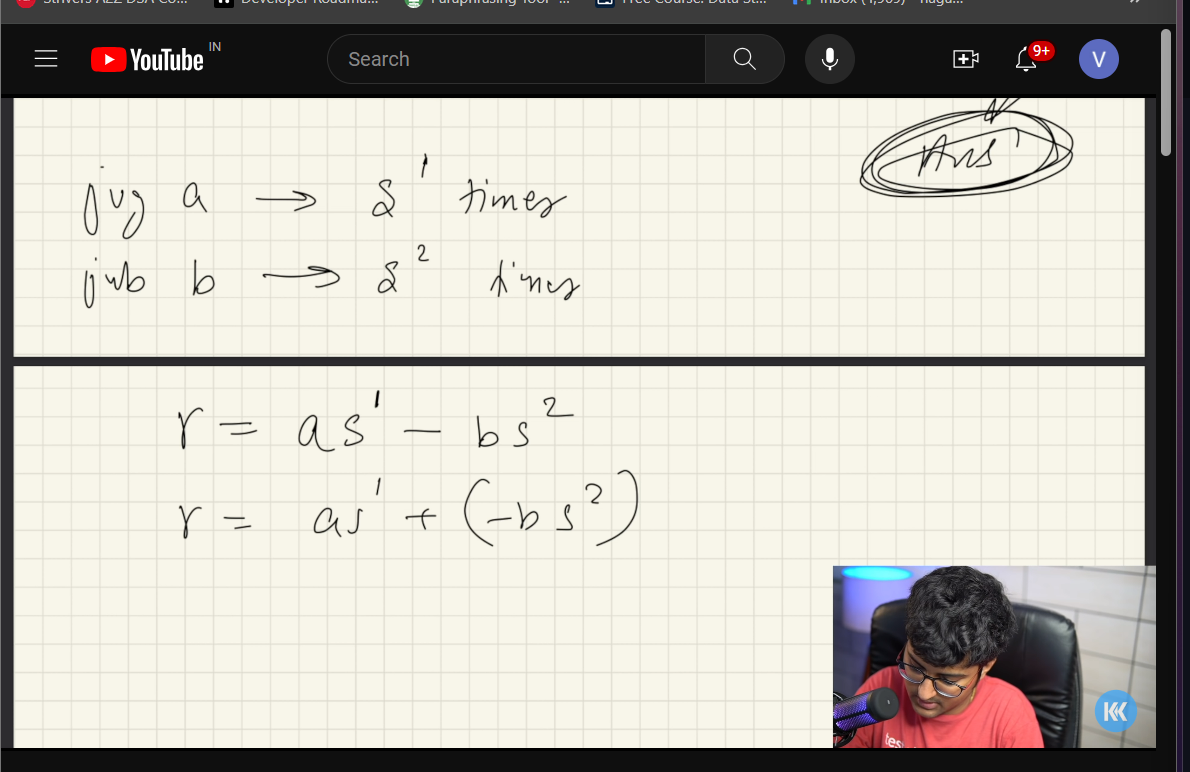 Strivers A2Z DSA Co... Developer Roadma... Paraphrasing Tool - ... Free Course: Data St... Inbox (1,969) - naga...
YouTube IN Search 9+ V
Ans
jug a → s¹ times
jub b → s² times
r = as¹ - bs²
r = as¹ + (-bs²)